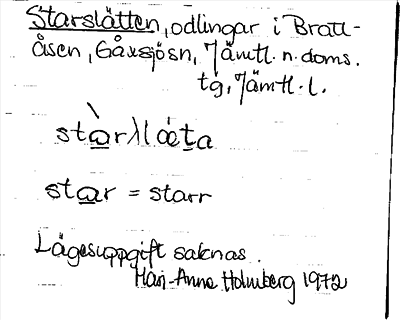 Starslätten, odlingar i Bratt-
åsen, Gåxsjösn, Jämtl. n. doms.
tg, Jämtl. l.
starr = starr
Lägesuppgift saknas.
Mari-Anne Holmberg 1972